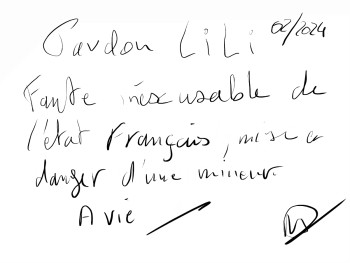 Pardon LiLi 02/2024
Faute inéxcusable de
l'état Français, mise en
danger d'une mineure
A vie